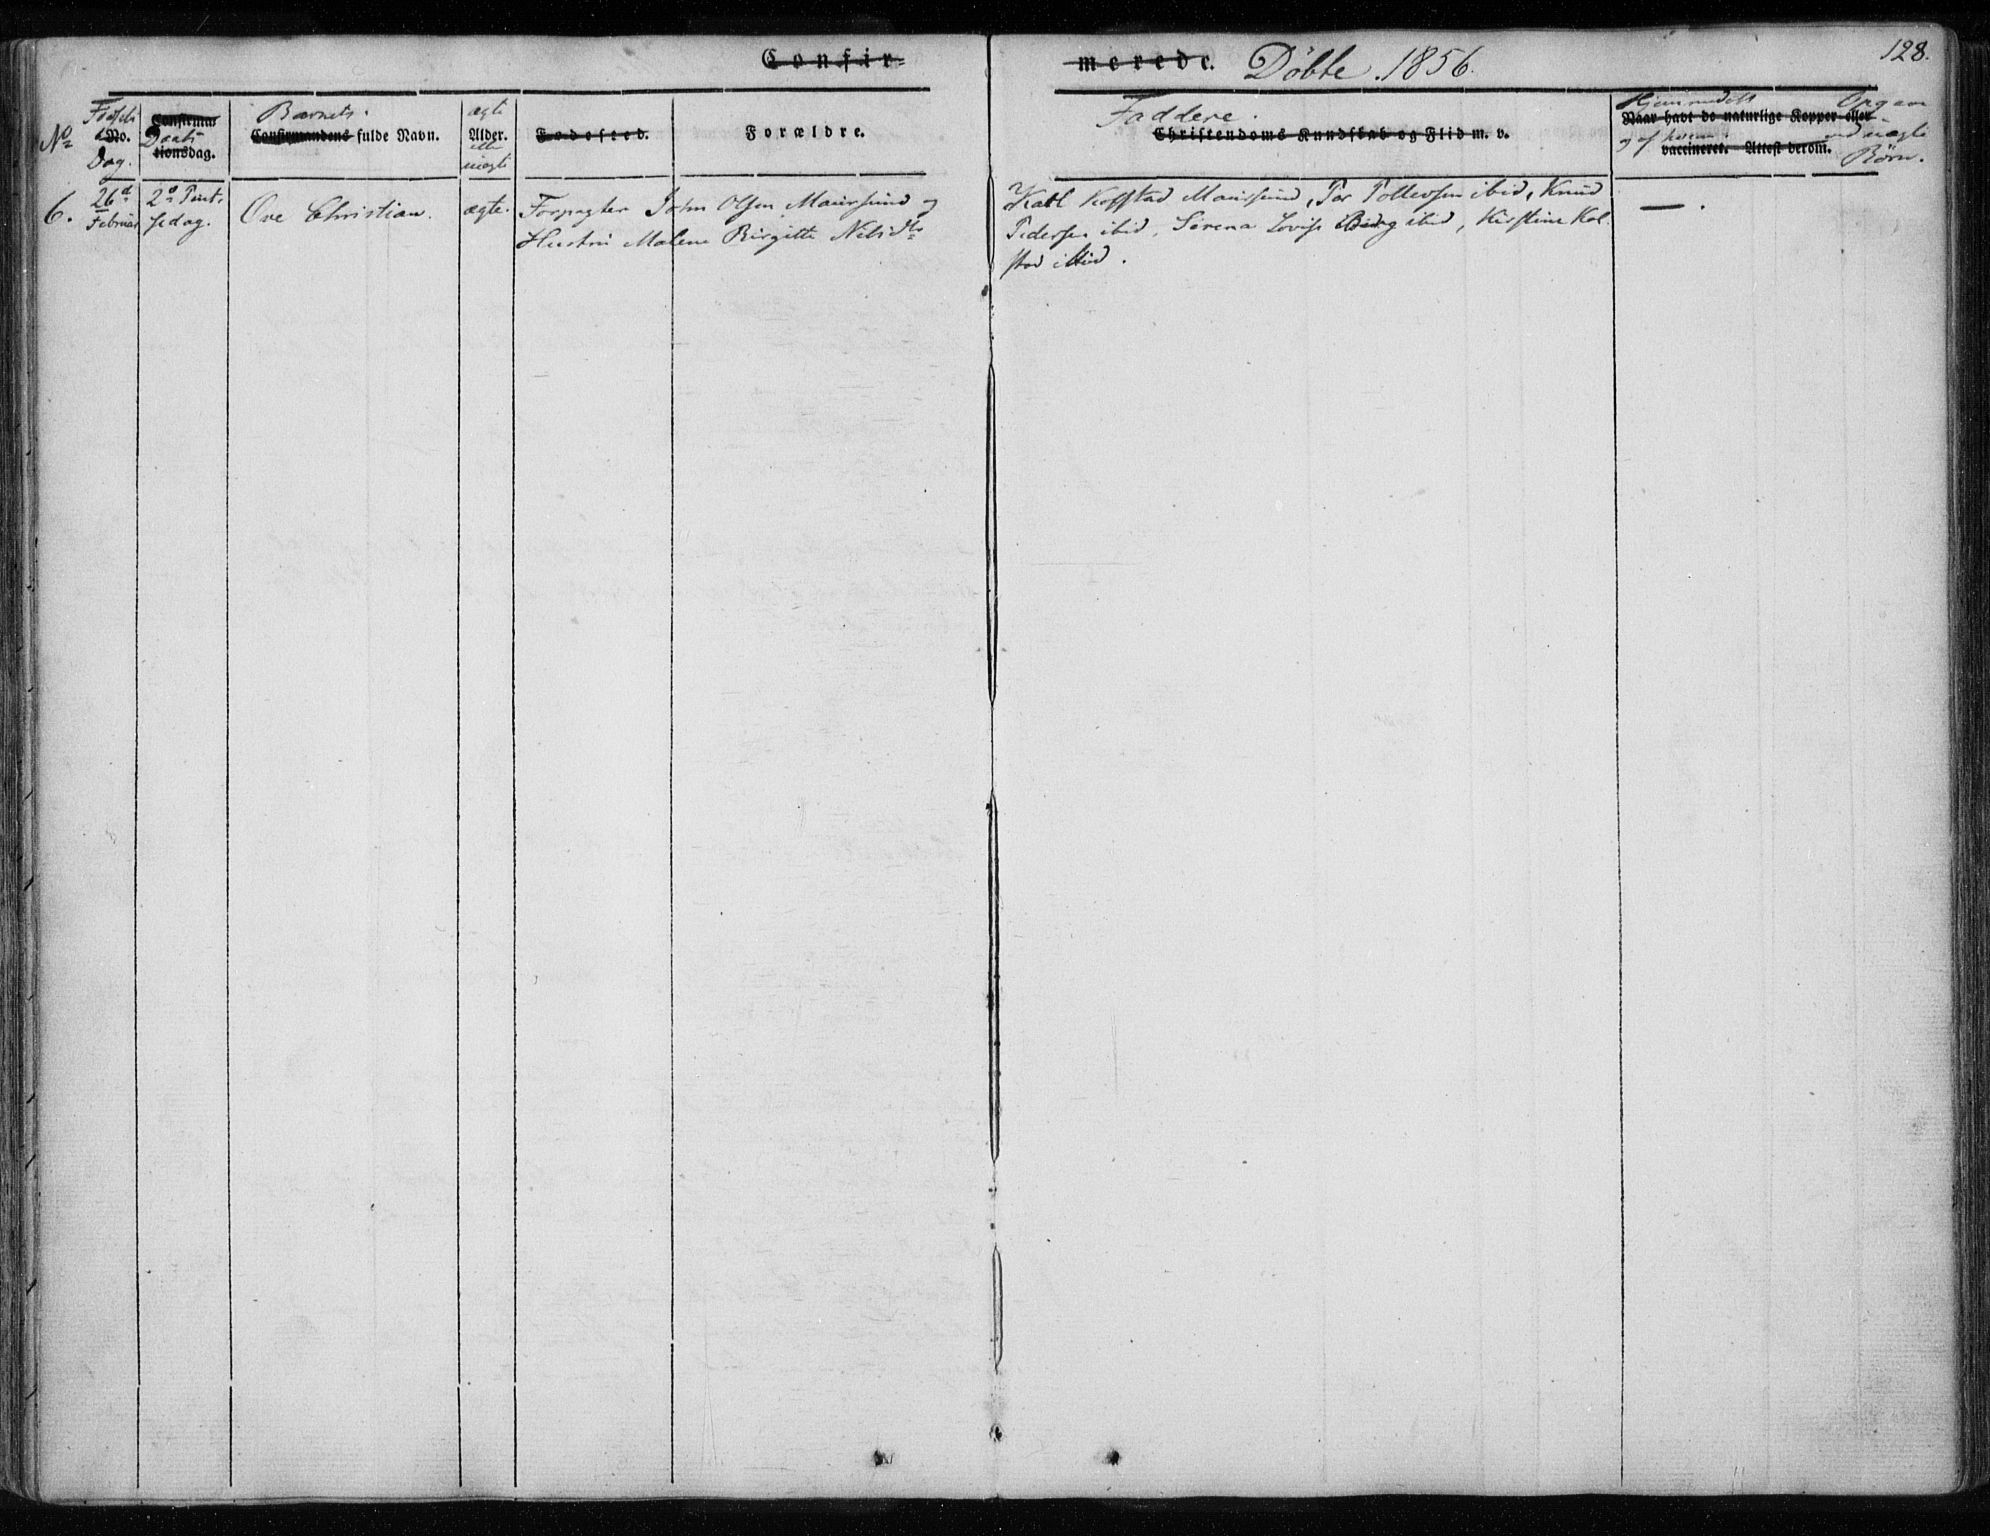 Confir=
merede. Döbte. 1856.
128.
No
Födsels
No.
Dag.
Confirma
Daabs
tionsdag.
Barnets.
Confirmandens fulde Navn.
ægte
Alder.
eller
uægte
Fødested.
Forældre.
Faddere.
Christendoms Kundskab og Flid m. v.
Hjemmedøbt
Naar havt de naturlige Kopper eller
og af hvem.
vaccineret. Attest derom.
ved uægte
Börn.
6.
26d
Februar
2d Pint-
sedag.
Ove Christian.
ægte.
Forpagter John Olsen Maursund og
Hustru Malene Birgitte
Kofstad Maursund, Tollevsen ibid, Knud
Pedersen ibid, Serena Lovise Berg ibid, Kirstine Kol-
stad ibid.
— .